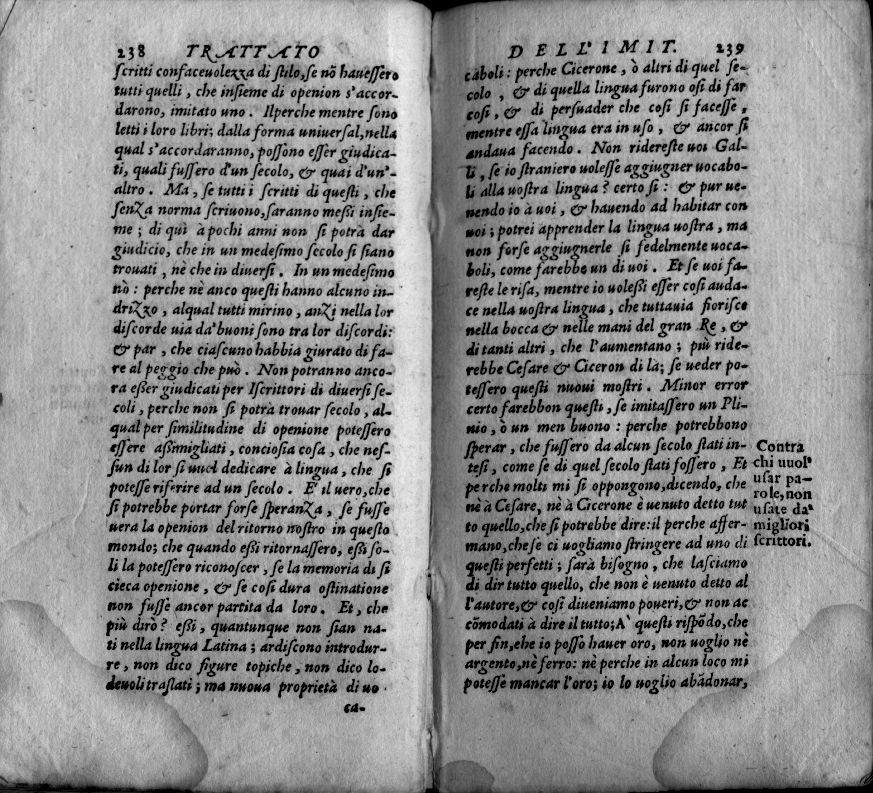 238 TRATTATO
ſcritti confaceuolezza di ſtilo, ſe nõ haueſſero
tutti quelli, che inſieme di openion s'accor-
darono, imitato uno. Ilperche mentre ſono
letti i loro libri; dalla forma uniuerſal, nella
qual s'accordaranno, poſſono eſſer giudica-
ti, quali fuſſero d'un ſecolo, & quai d'un'-
altro. Ma, ſe tutti i ſcritti di queſti, che
ſenza norma ſcriuono, ſaranno meßi inſie-
me; di quì à pochi anni non ſi potrà dar
giudicio, che in un medeſimo ſecolo ſi ſiano
trouati, nè che in diuerſi. In un medeſimo
nò: perche nè anco queſti hanno alcuno in-
drizzo, alqual tutti mirino, anzi nella lor
diſcorde uia da' buoni ſono tra lor diſcordi:
& par, che ciaſcuno habbia giurato di fa-
re al peggio che può. Non potranno anco-
ra eßer giudicati per Iſcrittori di diuerſi ſe-
coli, perche non ſi potrà trouar ſecolo, al-
qual per ſimilitudine di openione poteſſero
eſſere aßimigliati, concioſia coſa, che neſ-
ſun di lor ſi uuol dedicare à lingua, che ſi
poteſſe riferire ad un ſecolo. E' il uero, che
ſi potrebbe portar forſe ſperanza, ſe fuſſe
uera la openion del ritorno noſtro in queſto
mondo; che quando eßi ritornaſſero, eßi ſo-
li la poteſſero riconoſcer, ſe la memoria di ſi
cieca openione, & ſe coſi dura oſtinatione
non fuſſe ancor partita da loro. Et, che
più dirò? eßi, quantunque non ſian na-
ti nella lingua Latina; ardiſcono introdur-
re, non dico figure topiche, non dico lo-
deuoli traſlati; ma nuoua proprietà di uo
ca-
DELL'IMIT. 239
caboli: perche Cicerone, ò altri di quel ſe-
colo, & di quella lingua furono oſi di far
coſi, & di perſuader che coſi ſi faceſſe,
mentre eſſa lingua era in uſo, & ancor ſi
andaua facendo. Non ridereſte uoi Gal-
li, ſe io ſtraniero uoleſſe aggiugner uocabo-
li alla uoſtra lingua? certo ſi: & pur ue-
nendo io à uoi, & hauendo ad habitar con
uoi; potrei apprender la lingua uoſtra, ma
non forſe aggiugnerle ſi fedelmente uoca-
boli, come farebbe un di uoi. Et ſe uoi fa-
reſte le riſa, mentre io uoleßi eſſer coſi auda-
ce nella uoſtra lingua, che tuttauia fioriſce
nella bocca & nelle mani del gran Re, &
di tanti altri, che l'aumentano; più ride-
rebbe Ceſare & Ciceron di là; ſe ueder po-
teſſero queſti nuoui moſtri. Minor error
certo farebbon queſti, ſe imitaſſero un Pli-
nio, ò un men buono: perche potrebbono
ſperar, che fuſſero da alcun ſecolo ſtati in-
teſi, come ſe di quel ſecolo ſtati foſſero, Et
perche molti mi ſi oppongono, dicendo, che
nè à Ceſare, nè à Cicerone è uenuto detto tut
to quello, che ſi potrebbe dire: il perche affer-
mano, che ſe ci uogliamo ſtringere ad uno di
queſti perfetti; ſarà biſogno, che laſciamo
di dir tutto quello, che non è uenuto detto al
l'autore, & coſi diueniamo poueri, & non ac
cõmodati à dire il tutto; A' queſti riſpõdo, che
per fin, ehe io poſſo hauer oro, non uoglio nè
argento, nè ferro: nè perche in alcun loco mi
poteſſe mancar l'oro; io lo uoglio abãdonar,
Contra
chi uuol'
uſar pa-
role, non
uſate da'
migliori
ſcrittori.